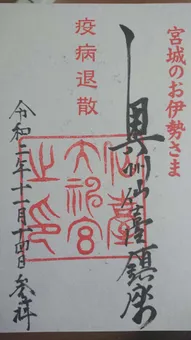 宮城のお伊勢さま
奥州仙臺鎮座
疫病退散
仙臺
大神宮
之印
令和二年十一月十四日 参拝